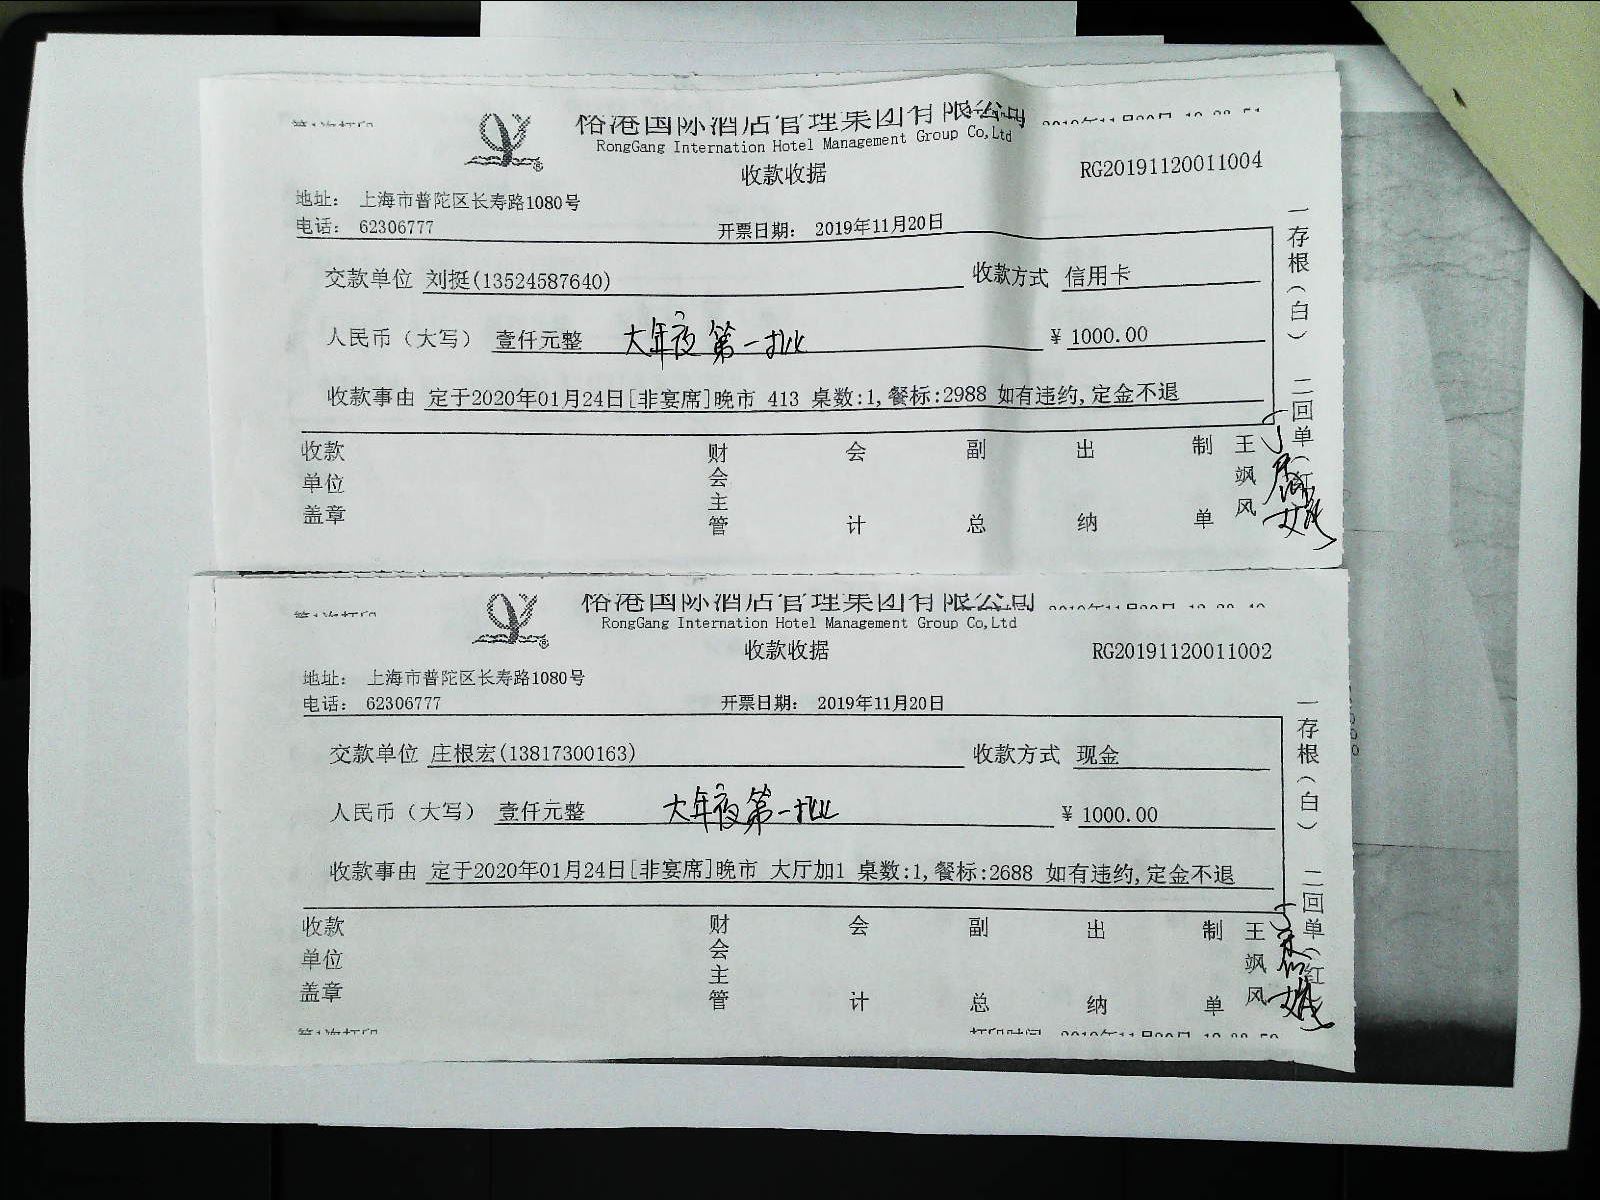 裕港国际酒店管理集团有限公司
RongGang Internation Hotel Management Group Co,Ltd
收款收据
RG20191120011004
地址： 上海市普陀区长寿路1080号
电话： 62306777
开票日期： 2019年11月20日
交款单位 刘挺(13524587640) 收款方式 信用卡
人民币（大写） 壹仟元整 大年夜第一批 ¥ 1000.00
收款事由 定于2020年01月24日[非宴席]晚市 413 桌数:1,餐标:2988 如有违约,定金不退
收款单位盖章 财会主管 会计 副总 出纳 制单 王飒风
一存根（白） 二回单（红
裕港国际酒店管理集团有限公司
RongGang Internation Hotel Management Group Co,Ltd
收款收据
RG20191120011002
地址： 上海市普陀区长寿路1080号
电话： 62306777
开票日期： 2019年11月20日
交款单位 庄根宏(13817300163) 收款方式 现金
人民币（大写） 壹仟元整 大年夜第一批 ¥ 1000.00
收款事由 定于2020年01月24日[非宴席]晚市 大厅加1 桌数:1,餐标:2688 如有违约,定金不退
收款单位盖章 财会主管 会计 副总 出纳 制单 王飒风
一存根（白） 二回单（红
第1次打印